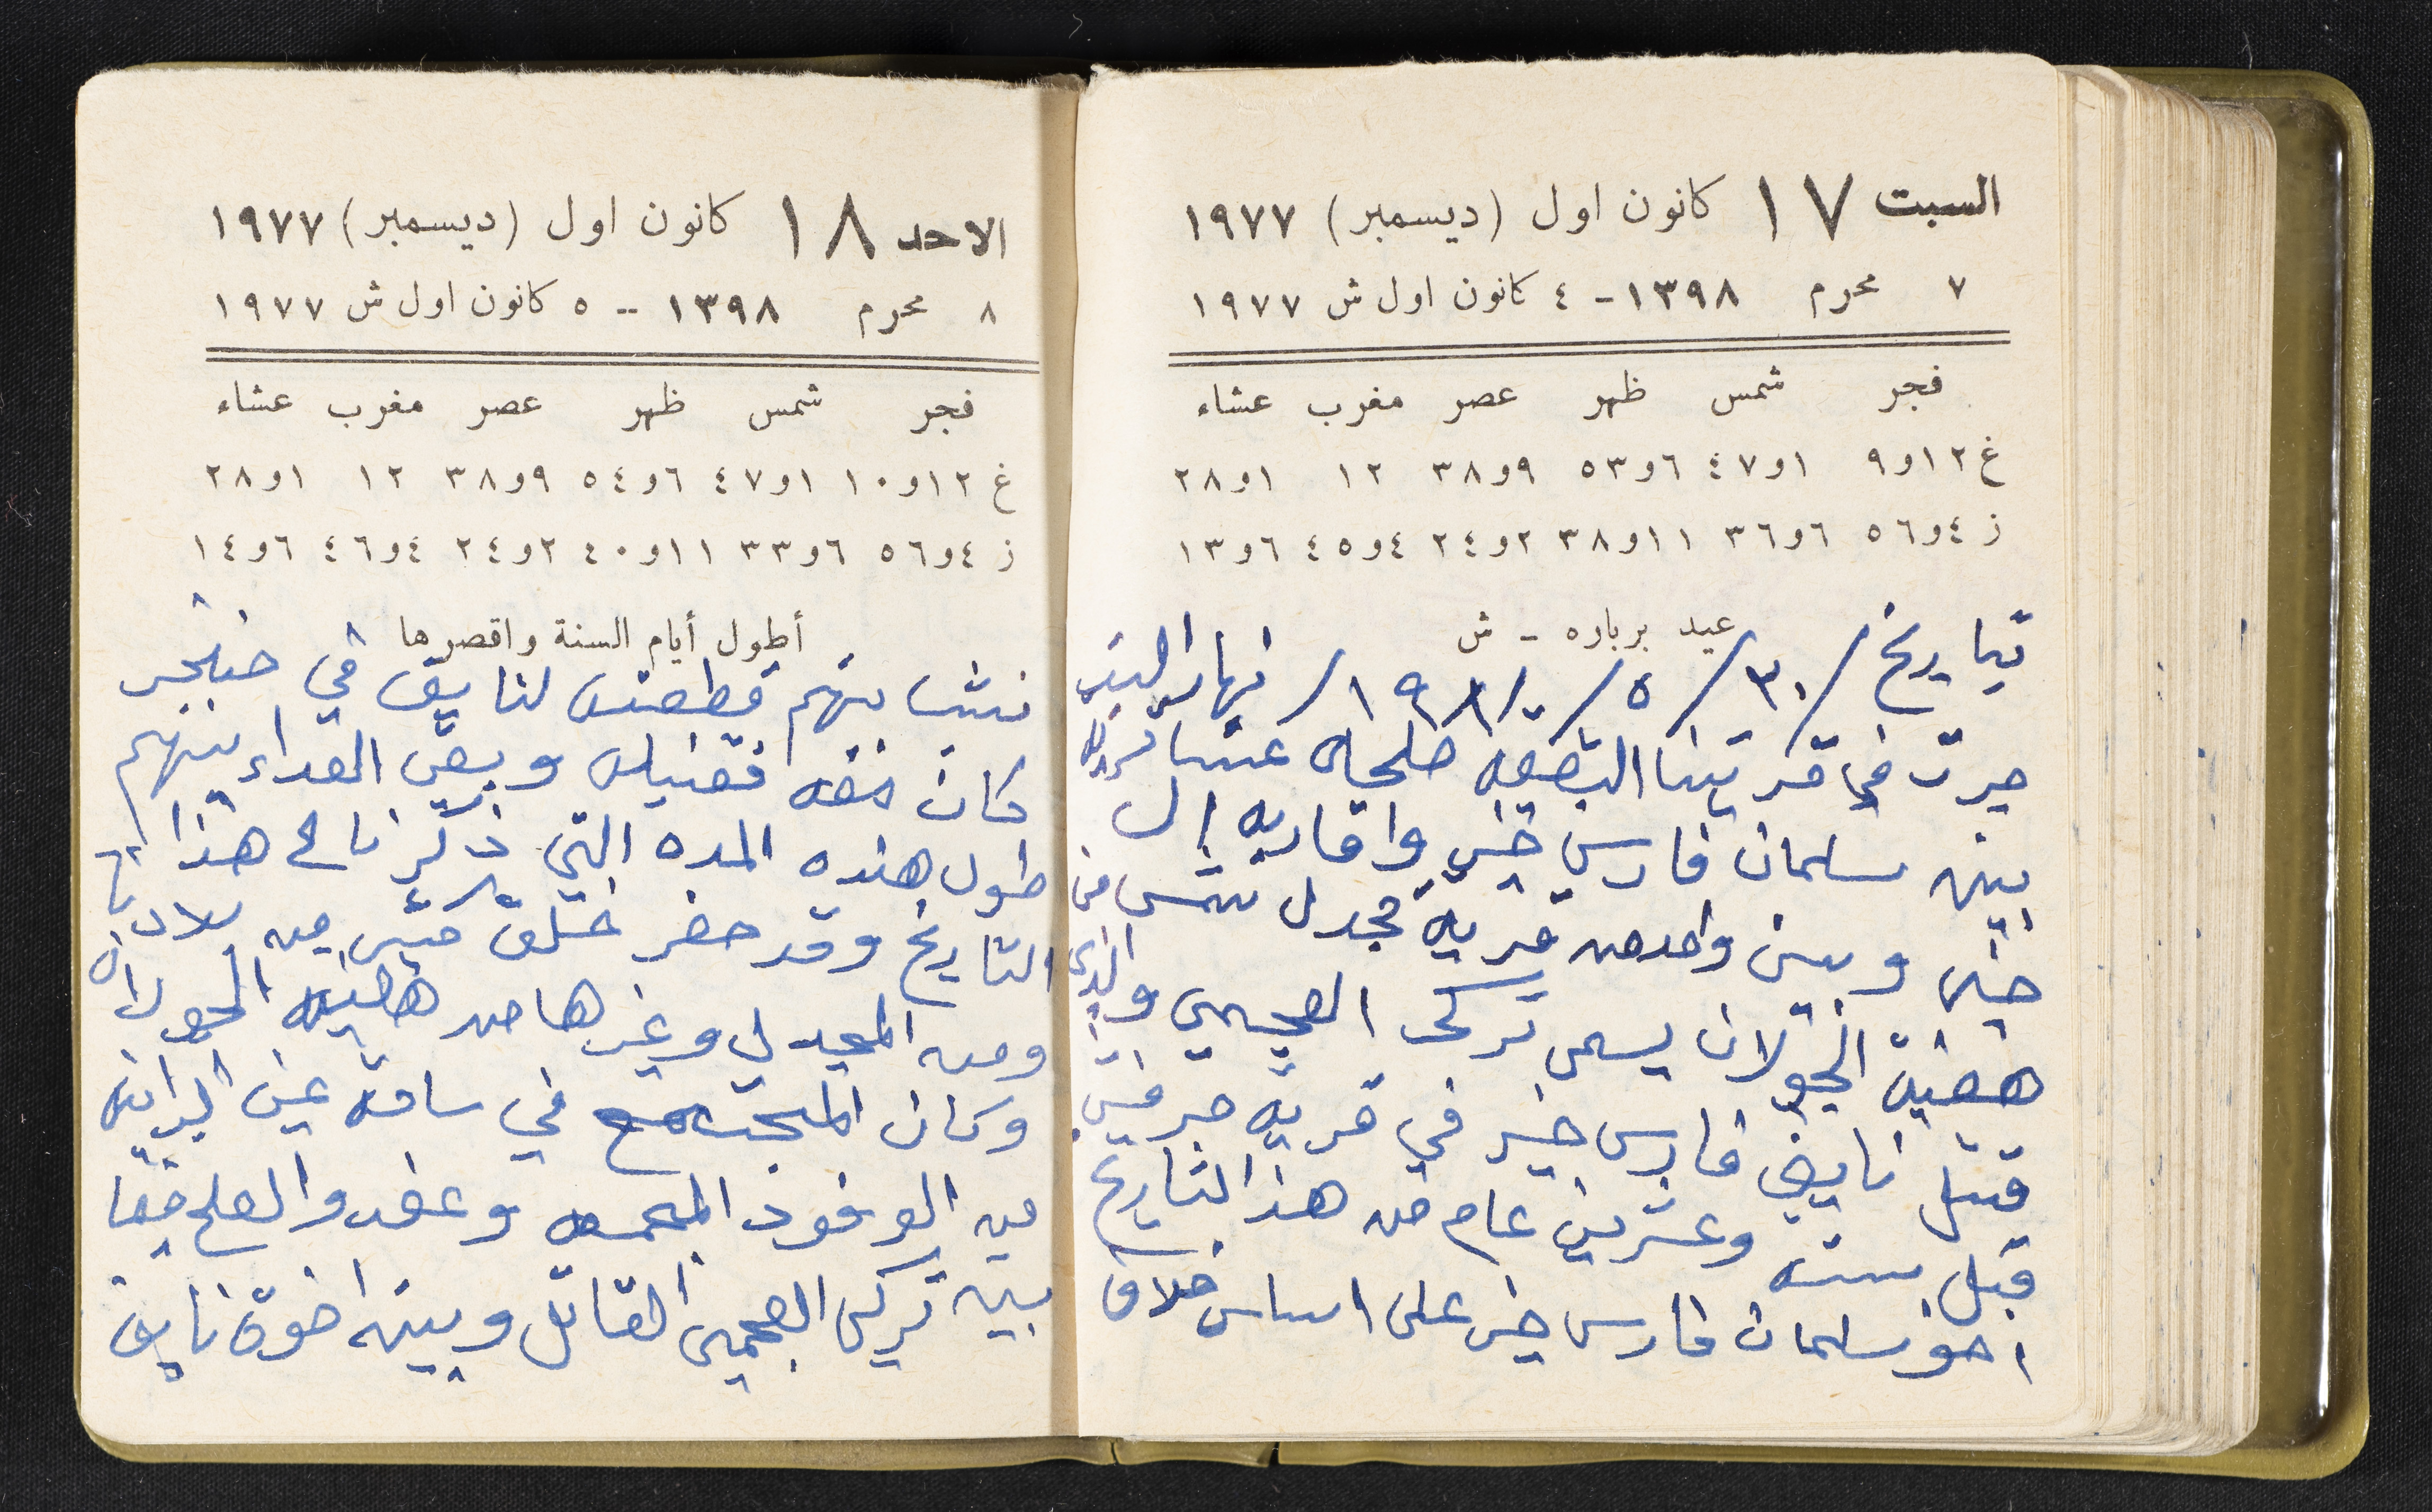 السبت ١٧ كانون اول (ديسمبر) ١٩٧٧
٧ محرم ١٣٩٨ - ٤ كانون اول ش ١٩٧٧
فجر شمس ظهر عصر مغرب عشاء
غ ١٢و٩ ١و٤٧ ٦و٥٣ ٩و٣٨ ١٢ ١و٢٨
ز ٤و٥٦ ٦و٣٦ ١١و٣٨ ٢و٢٤ ٤و٤٥ ٦و١٣
عيد برباره - ش
بتاريخ /٣٠/٥/١٩٨٠/ نهار
جرت في قريتنا البقيعه صلحه عشائريه
بين سلمان فارس خير واقاربه ال
خير وبين واحد من قرية مجدل شمس من
هضبة الجولان يسمى تركي العجمي والذي
قتل نايف فارس خير في قرية حرفيش
قبل سته وعشرين عام من هذا التاريخ
اخو سلمان فارس خير على اساس خلاف
الاحد ١٨ كانون اول (ديسمبر) ١٩٧٧
٨ محرم ١٣٩٨ -- ٥ كانون اول ش ١٩٧٧
فجر شمس ظهر عصر مغرب عشاء
غ ١٢و١٠ ١و٤٧ ٦و٥٤ ٩و٣٨ ١٢ ١و٢٨
ز ٤و٥٦ ٦و٣٣ ١١و٤٠ ٢و٢٤ ٤و٤٦ ٦و١٤
أطول أيام السنة واقصرها
نشب بينهم قطعنه لنايف في خنجر
كان معه فقتيله وبقي العداء بينهم
طول هذه المده التي ذكرنا لح هذا
التاريخ وقد حضر خلق كثير من بلادنا
ومن المجدل وغيرها من هضبة الجولان
وكان المجتمع في ساحة عين البرانيه
من الوفود المجمعه وعقدوا الصلح فيما
بين تركي العجمي القاتل وبين اخوة نايف